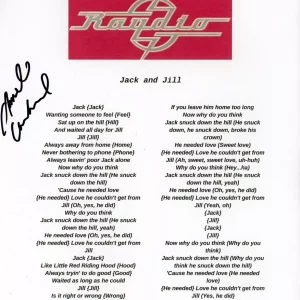 Raydio
Jack and Jill
Jack (Jack)
Wanting someone to feel (Feel)
Sat up on the hill (Hill)
And waited all day for Jill
Jill (Jill)
Always away from home (Home)
Never bothering to phone (Phone)
Always leavin' poor Jack alone
Now why do you think
Jack snuck down the hill (He snuck
down the hill)
'Cause he needed love
(He needed) Love he couldn't get from
Jill (Oh, yes, he did)
Why do you think
Jack snuck down the hill (He snuck
down the hill, yeah)
He needed love (Oh, yes, he did)
(He needed) Love he couldn't get from
Jill
Jack (Jack)
Like Little Red Riding Hood (Hood)
Always tryin' to do good (Good)
Waited as long as he could
Jill (Jill)
Is it right or wrong (Wrong)
If you leave him home too long
Now why do you think
Jack snuck down the hill (He snuck
down, he snuck down, broke his
crown)
He needed love (Sweet love)
(He needed) Love he couldn't get from
Jill (Ah, sweet, sweet love, uh-huh)
Why do you think (Hey., ha)
Jack snuck down the hill (He snuck
down the hill, yeah)
He needed love (Oh, yes, he did)
(He needed) Love he couldn't get from
Jill (Yeah, oh)
(Jack)
(Jill)
(Jack)
(Jill)
Now why do you think (Why do you
think)
Jack snuck down the hill (Why do you
think he snuck down the hill)
'Cause he needed love (He needed
love)
(He needed) Love he couldn't get from